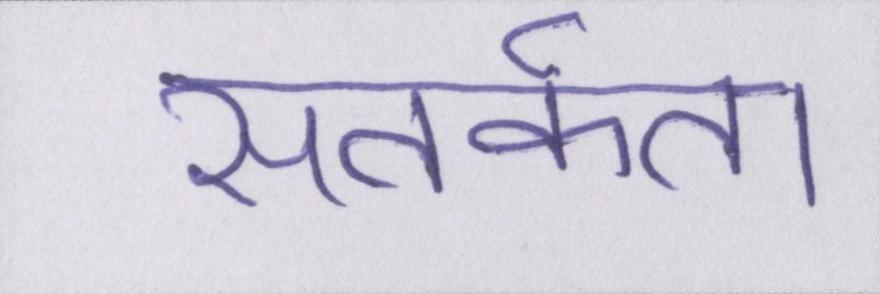 सतर्कता